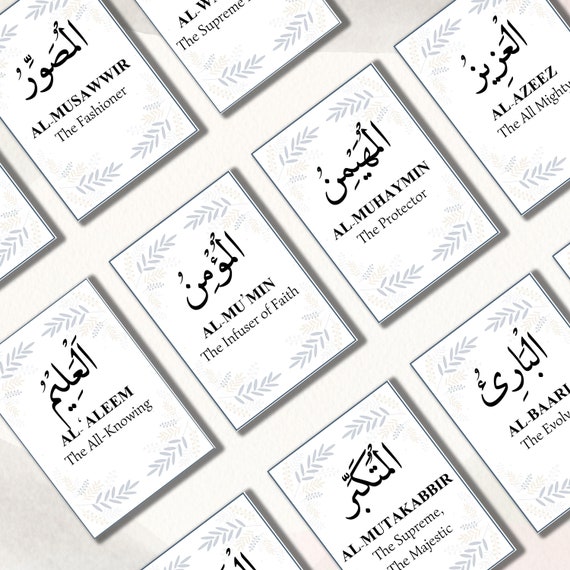 الْمُصَوِّرُ
AL-MUSAWWIR
The Fashioner
The Supreme
الْعَزِيزُ
AL-AZEEZ
The All Mighty
الْمُهَيْمِنُ
AL-MUHAYMIN
The Protector
الْمُؤْمِنُ
AL-MU'MIN
The Infuser of Faith
الْعَلِيْمُ
AL-‘ALEEM
The All-Knowing
الْبَارِئُ
AL-BAARI
The Evolv
الْمُتَكَبِّرُ
AL-MUTAKABBIR
The Supreme,
The Majestic